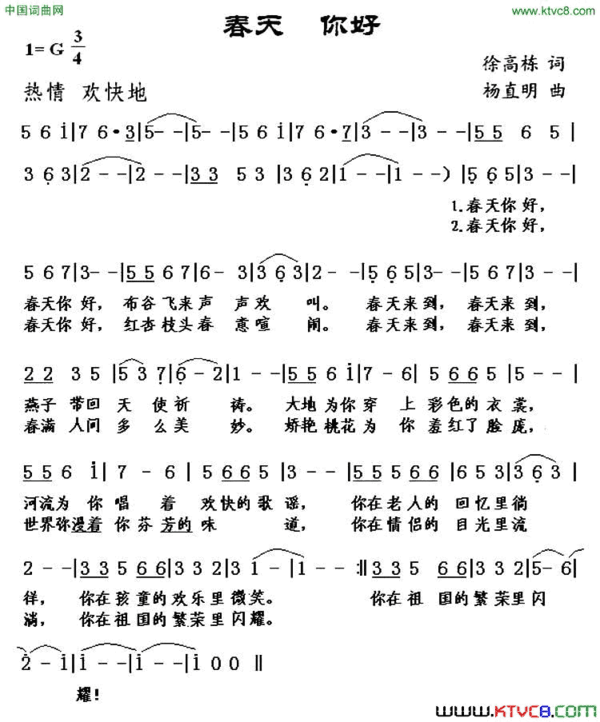 中国词曲网
www.ktvc8.com
春天 你好
1= G 3/4
徐高栋 词
热情 欢快地
杨直明 曲
5 6 i|7 6·3|5- -|5- -|5 6 i|7 6·7|3 - -|3 - -|5 5 6 5|
3 6 3|2 - -|2 - -|3 3 5 3|3 6 2|1 - -|1 - -)|5 6 5|3 - -|
1.春天你好,
2.春天你好,
5 6 7|3- -|5 5 6 7|6- 3|3 6 3|2- -|5 6 5|3- -|5 6 5|3- -|
春天你好, 布谷飞来声 声欢 叫。 春天来到, 春天来到,
春天你好, 红杏枝头春 意喧 闹。 春天来到, 春天来到,
2 2 3 5|5 3 7|6 - 2|1 - -|5 5 6 i|7 - 6|5 6 6 5|5 - -|
燕子 带回 天 使祈 祷。 大地 为你 穿 上 彩色的 衣 裳,
春满 人间 多 么美 妙。 娇艳 桃花 为 你 羞红了 脸 庞,
5 5 6 i|7 - 6|5 6 6 5|3 - -|5 5 3 5|6 5 3|3 6 3|
河流为 你 唱 着 欢快的 歌 谣, 你在 老人的 回忆里徜
世界弥漫着 你 芬 芳的 味 道, 你在 情侣的 目光里流
2 - -|3 3 5 6 6|3 3 2 3|1 - -|1 - -:‖3 3 5 6 6|3 3 2 3|5- 6|
徉, 你在孩童的欢乐里微笑。 你在祖国的繁荣里闪
淌, 你在祖国的繁荣里闪耀。
2 - i|i - -|i - -|i 0 0 ‖
耀!
www.KTVC8.com